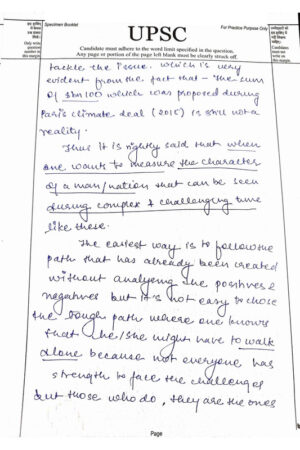 Specimen Booklet
For Practice Purpose Only
UPSC
Candidate must adhere to the word limit specified in the question.
Any page or portion of the page left blank must be clearly struck off.
Only write
question
number on
this margin.
tackle the issue. Which is very
evident from the fact that - The sum
of $bn100 which was proposed during
Paris climate deal (2015) is still not a
reality.
Thus it is rightly said that when
one wants to measure the character
of a man/nation that can be seen
during complex & challenging time
like these.
The easiest way is to follow the
path that has already been created
without analysing the positives &
negatives but it's not easy to chose
the tough path where one knows
that he/she might have to walk
alone because not everyone has
strength to face the challenges
but those who do, they are the ones
Page